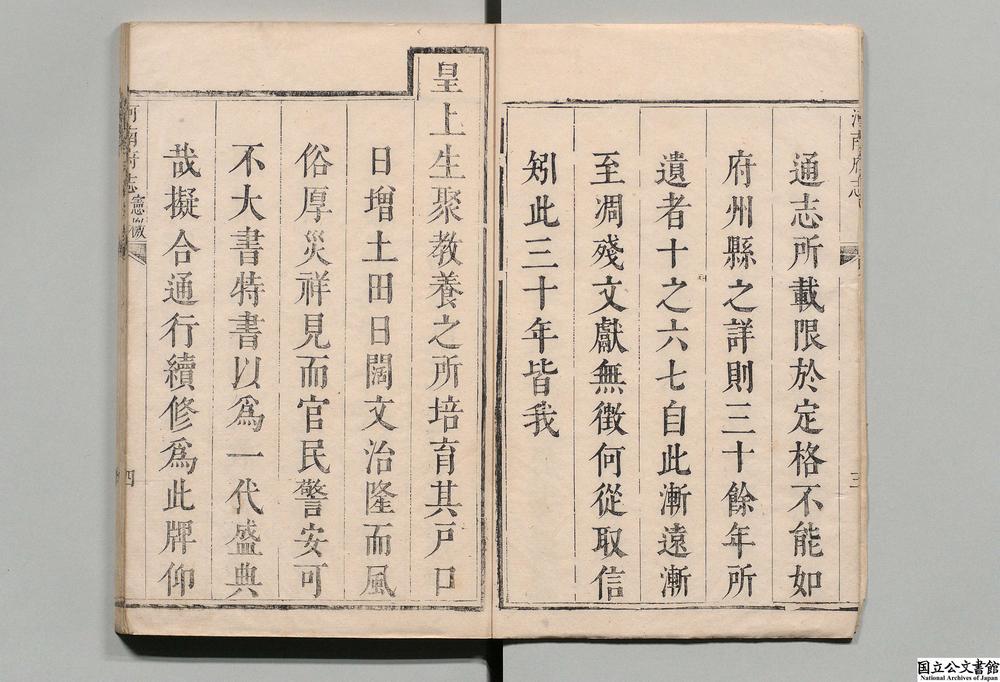 河南府志
三
通志所載限於定格不能如
府州縣之詳則三十餘年所
遺者十之六七自此漸遠漸
至凋殘文獻無徵何從取信
矧此三十年皆我
皇上生聚教養之所培育其戸口
日增土田日闢文治隆而風
俗厚災祥見而官民警安可
不大書特書以爲一代盛典
哉擬合通行續修爲此牌仰
河南府志
憲檄
四
国立公文書館
National Archives of Japan